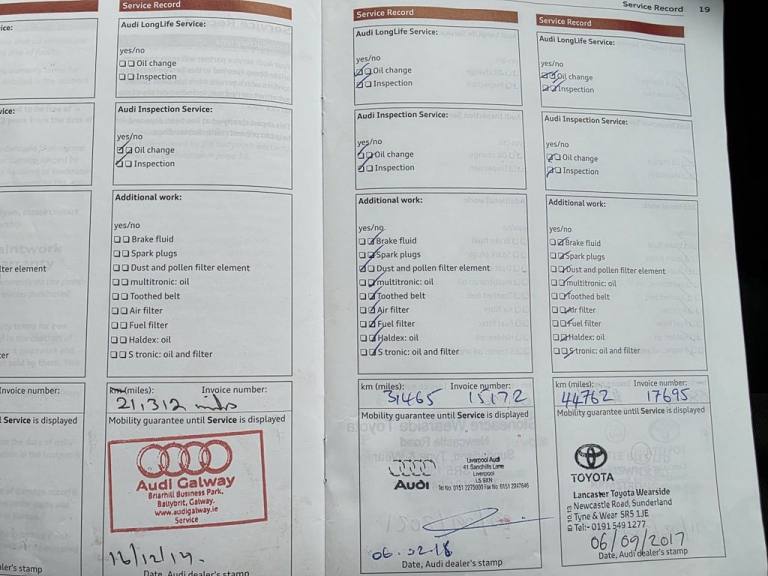 ice:
vice:
lter element
er
nvoice number:
l Service is displayed
aler's stamp
Service Record
Audi LongLife Service:
yes/no
Oil change
Inspection
Audi Inspection Service:
yes/no
Oil change
Inspection
Additional work:
yes/no
Brake fluid
Spark plugs
Dust and pollen filter element
multitronic: oil
Toothed belt
Air filter
Fuel filter
Haldex: oil
S tronic: oil and filter
km (miles): Invoice number:
21,312 mils
Mobility guarantee until Service is displayed
Audi Galway
Briarhill Business Park,
Ballybrit, Galway.
www.audigalway.ie
Service
16/12/14.
Date, Audi dealer's stamp
Service Record
Audi LongLife Service:
yes/no
Oil change
Inspection
Audi Inspection Service:
yes/no
Oil change
Inspection
Additional work:
yes/no
Brake fluid
Spark plugs
Dust and pollen filter element
multitronic: oil
Toothed belt
Air filter
Fuel filter
Haldex: oil
S tronic: oil and filter
km (miles): Invoice number:
31465 15172
Mobility guarantee until Service is displayed
Audi
Liverpool Audi
41 Sandhills Lane
Liverpool
L5 9XN
Tel No: 0151 2275000 Fax No: 0151 2247646
06.02.16
Date, Audi dealer's stamp
Service Record 19
Service Record
Audi LongLife Service:
yes/no
Oil change
Inspection
Audi Inspection Service:
yes/no
Oil change
Inspection
Additional work:
yes/no
Brake fluid
Spark plugs
Dust and pollen filter element
multitronic: oil
Toothed belt
Air filter
Fuel filter
Haldex: oil
S tronic: oil and filter
km (miles): Invoice number:
44762 17695
Mobility guarantee until Service is displayed
TOYOTA
Lancaster Toyota Wearside
Newcastle Road, Sunderland
Tyne & Wear SR5 1JE
Tel:- 0191 549 1277
ID 10.13
06/09/2017
Date, Audi dealer's stamp